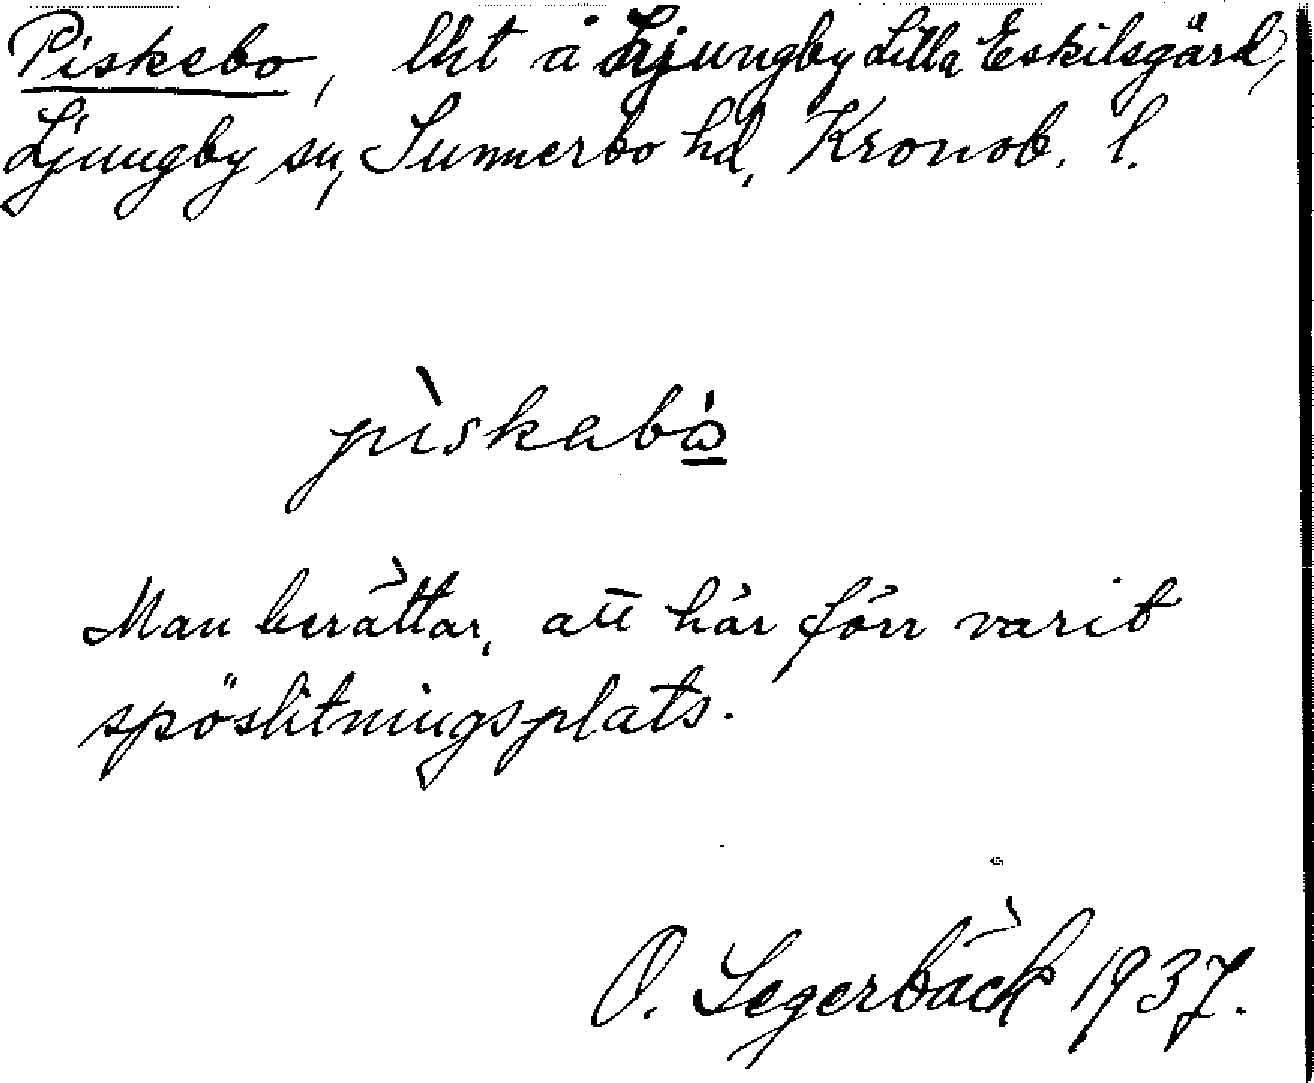 Piskebo, lht å Ljungby Lilla Eskilsgård,
Ljungby sn, Sunnerbo hd, Kronob. l.
pìskabó
Man berättar, att här förr varit
spöslitningsplats.
O. Segerbäck 1937.